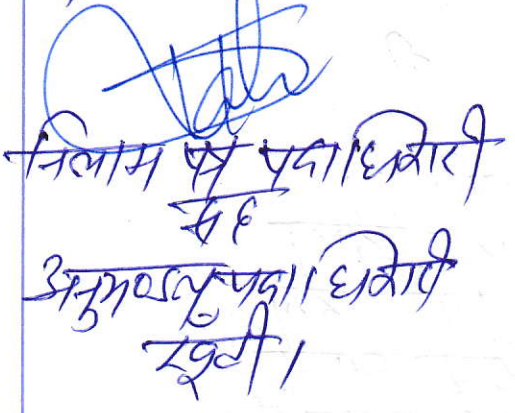 निलाम पत्र पदाधिकारी
सह
अनुमण्डल पदाधिकारी
खूंटी।